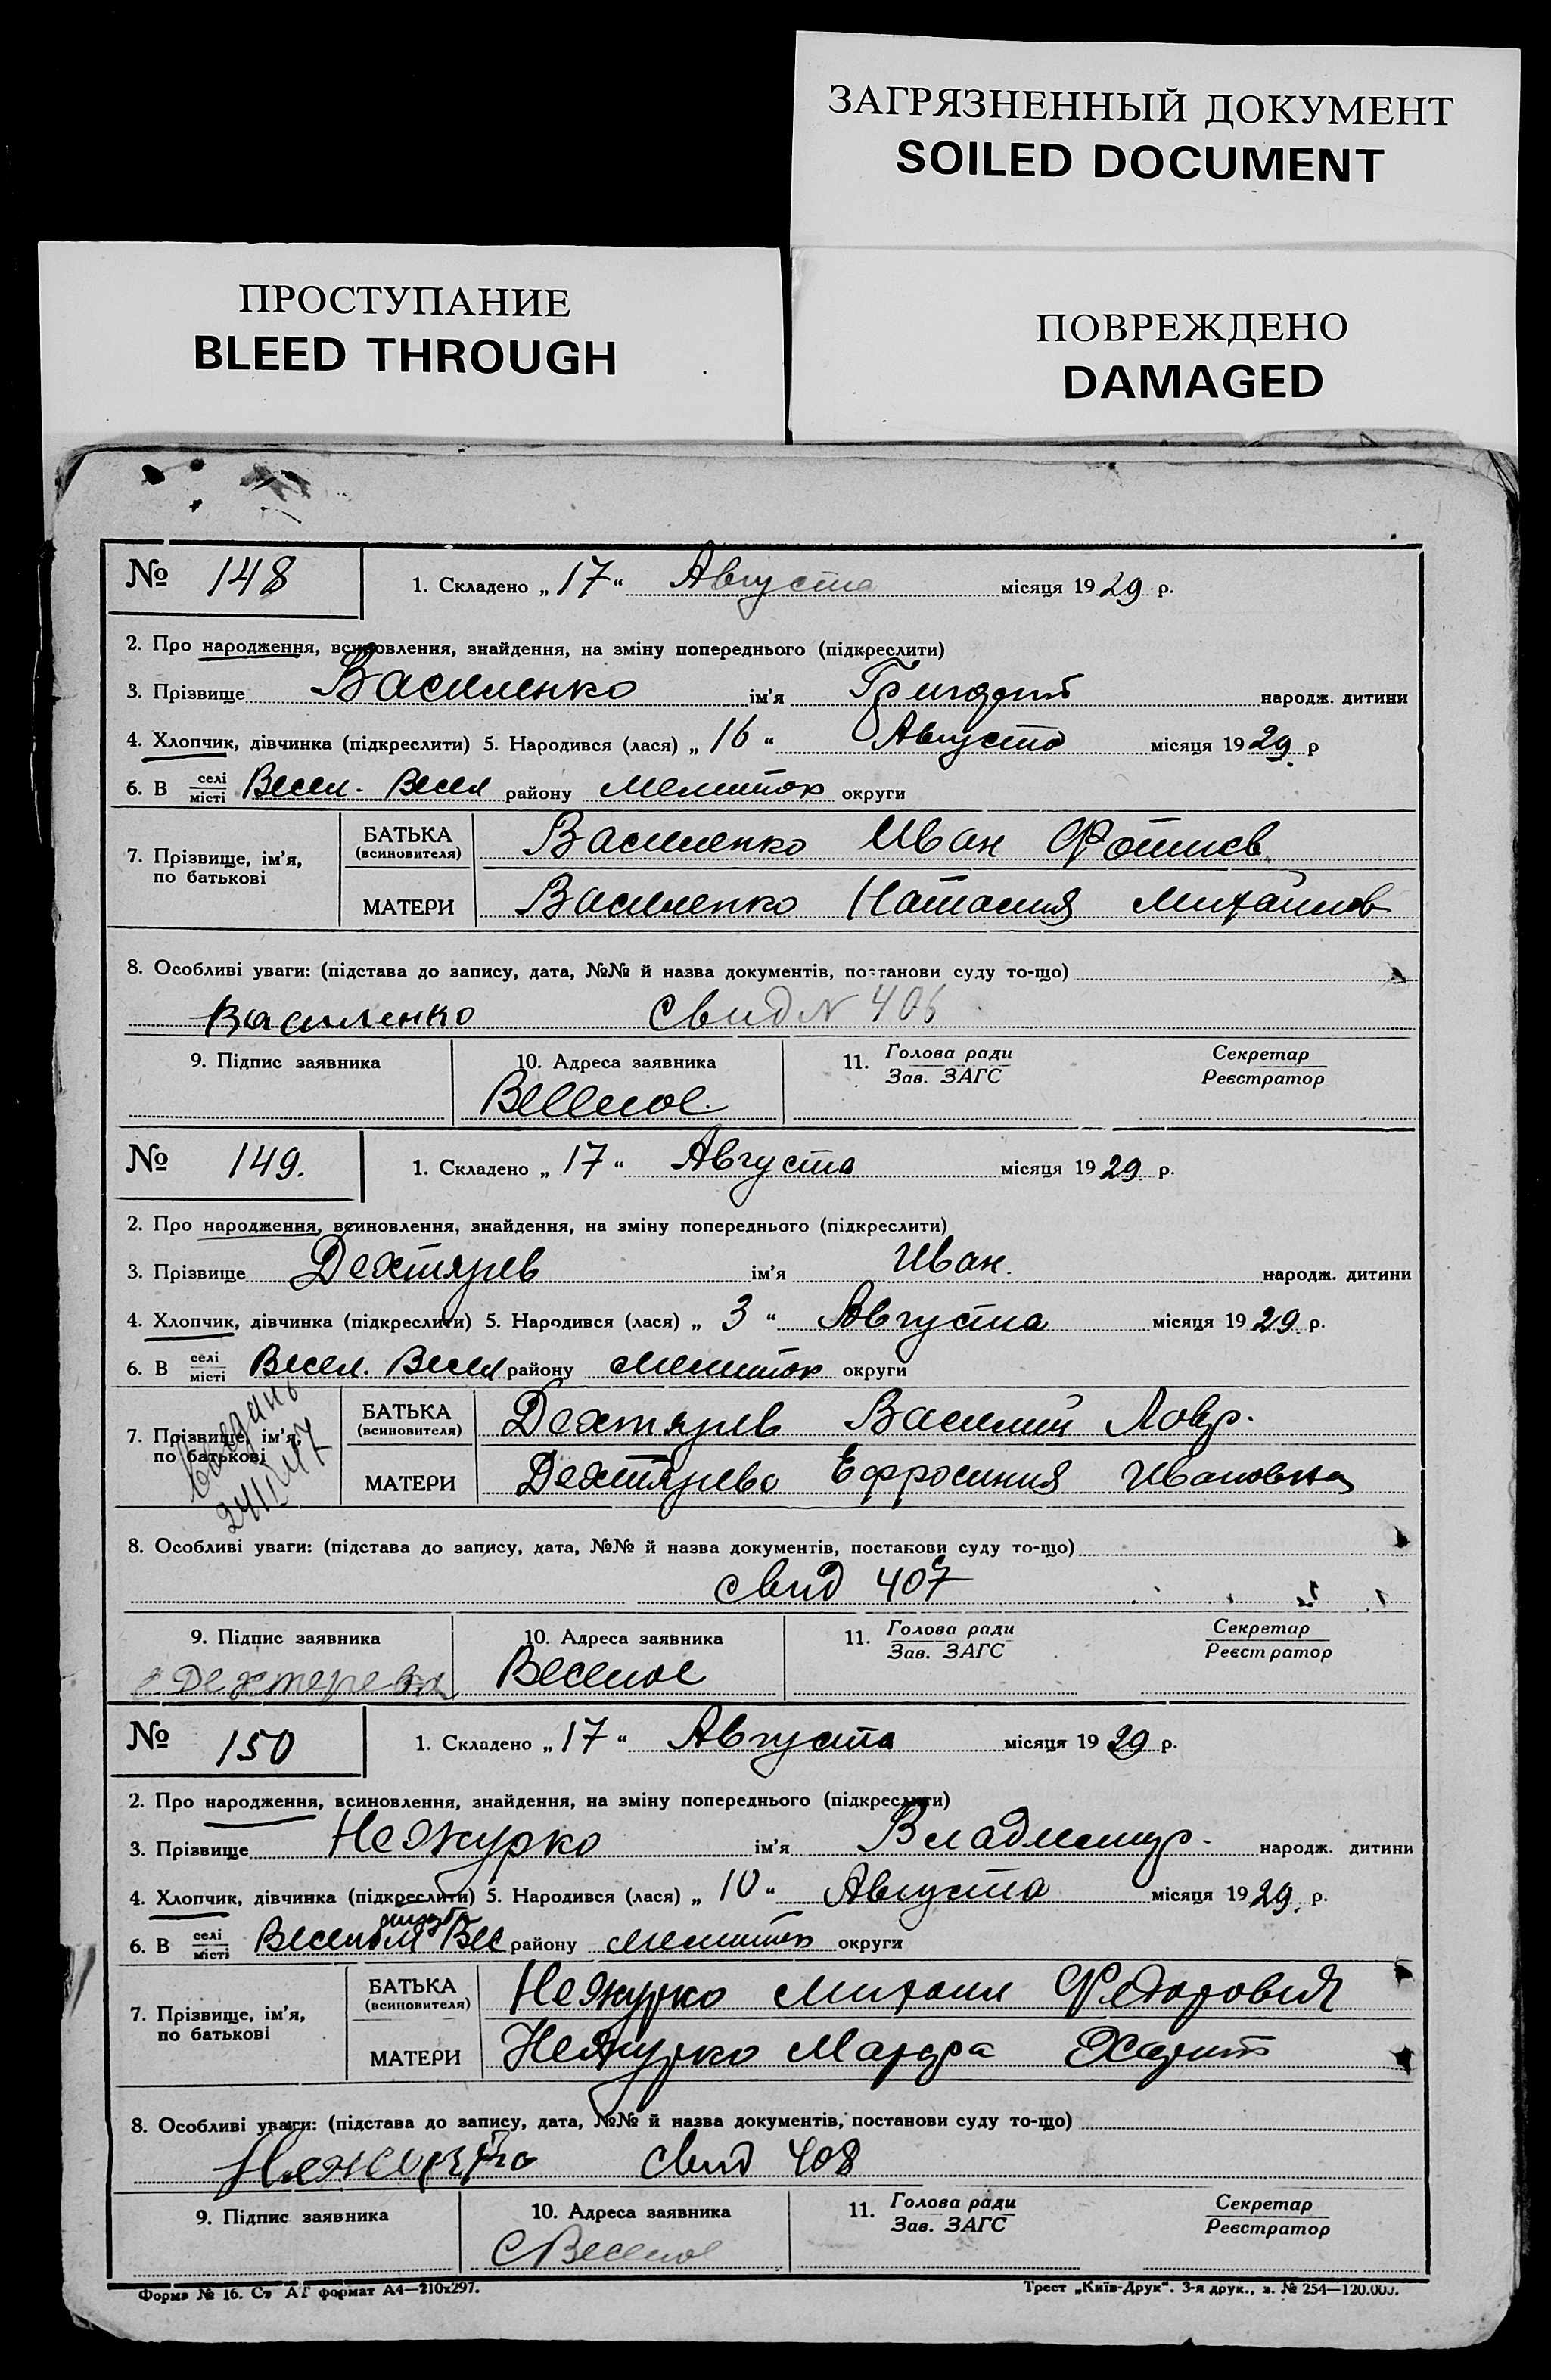 ЗАГРЯЗНЕННЫЙ ДОКУМЕНТ
SOILED DOCUMENT
ПРОСТУПАНИЕ
BLEED THROUGH
ПОВРЕЖДЕНО
DAMAGED
№ 148 1. Складено „17“ Августа місяця 1929 р.
2. Про народження, всиновлення, знайдення, на зміну попереднього (підкреслити)
3. Прізвище Василенко ім'я народж. дитини
4. Хлопчик, дівчинка (підкреслити) 5. Народився (лася) „16“ Августа місяця 1929 р
6. В селі місті Весел. Весел району Мелитоп округи
7. Прізвище, ім'я, по батькові
БАТЬКА (всиновителя) Василенко Иван Фотиев
МАТЕРИ Василенко Наталия Михайлов
8. Особливі уваги: (підстава до запису, дата, №№ й назва документів, постанови суду то-що)
Василенко Свид N 406
9. Підпис заявника 10. Адреса заявника 11. Голова ради Зав. ЗАГС Секретар Реєстратор
Веселое
№ 149. 1. Складено „17“ Августа місяця 1929 р.
2. Про народження, всиновлення, знайдення, на зміну попереднього (підкреслити)
3. Прізвище Дехтярев ім'я Иван. народж. дитини
4. Хлопчик, дівчинка (підкреслити) 5. Народився (лася) „3“ Августа місяця 1929 р.
6. В селі місті Весел. Весел району Мелитоп округи
7. Прізвище, ім'я, по батькові
БАТЬКА (всиновителя) Дехтярев Василий Лавр.
МАТЕРИ Дехтярева Ефросиния Ивановна
8. Особливі уваги: (підстава до запису, дата, №№ й назва документів, постанови суду то-що)
свид 407
9. Підпис заявника 10. Адреса заявника 11. Голова ради Зав. ЗАГС Секретар Реєстратор
Дехтерева Веселое
№ 150 1. Складено „17“ Августа місяця 1929 р.
2. Про народження, всиновлення, знайдення, на зміну попереднього (підкреслити)
3. Прізвище Нежурко ім'я Владимир. народж. дитини
4. Хлопчик, дівчинка (підкреслити) 5. Народився (лася) „10“ Августа місяця 1929 р.
6. В селі місті Веселом Вес району Мелитоп округи
7. Прізвище, ім'я, по батькові
БАТЬКА (всиновителя) Нежурко Михаил Федорович
МАТЕРИ Нежурко Марфа Харит
8. Особливі уваги: (підстава до запису, дата, №№ й назва документів, постанови суду то-що)
свид 408
9. Підпис заявника 10. Адреса заявника 11. Голова ради Зав. ЗАГС Секретар Реєстратор
С Веселое
Форма № 16. Ст АГ формат А4—210x297. Трест „Київ-Друк“. 3-я друк., з. № 254—120.000.